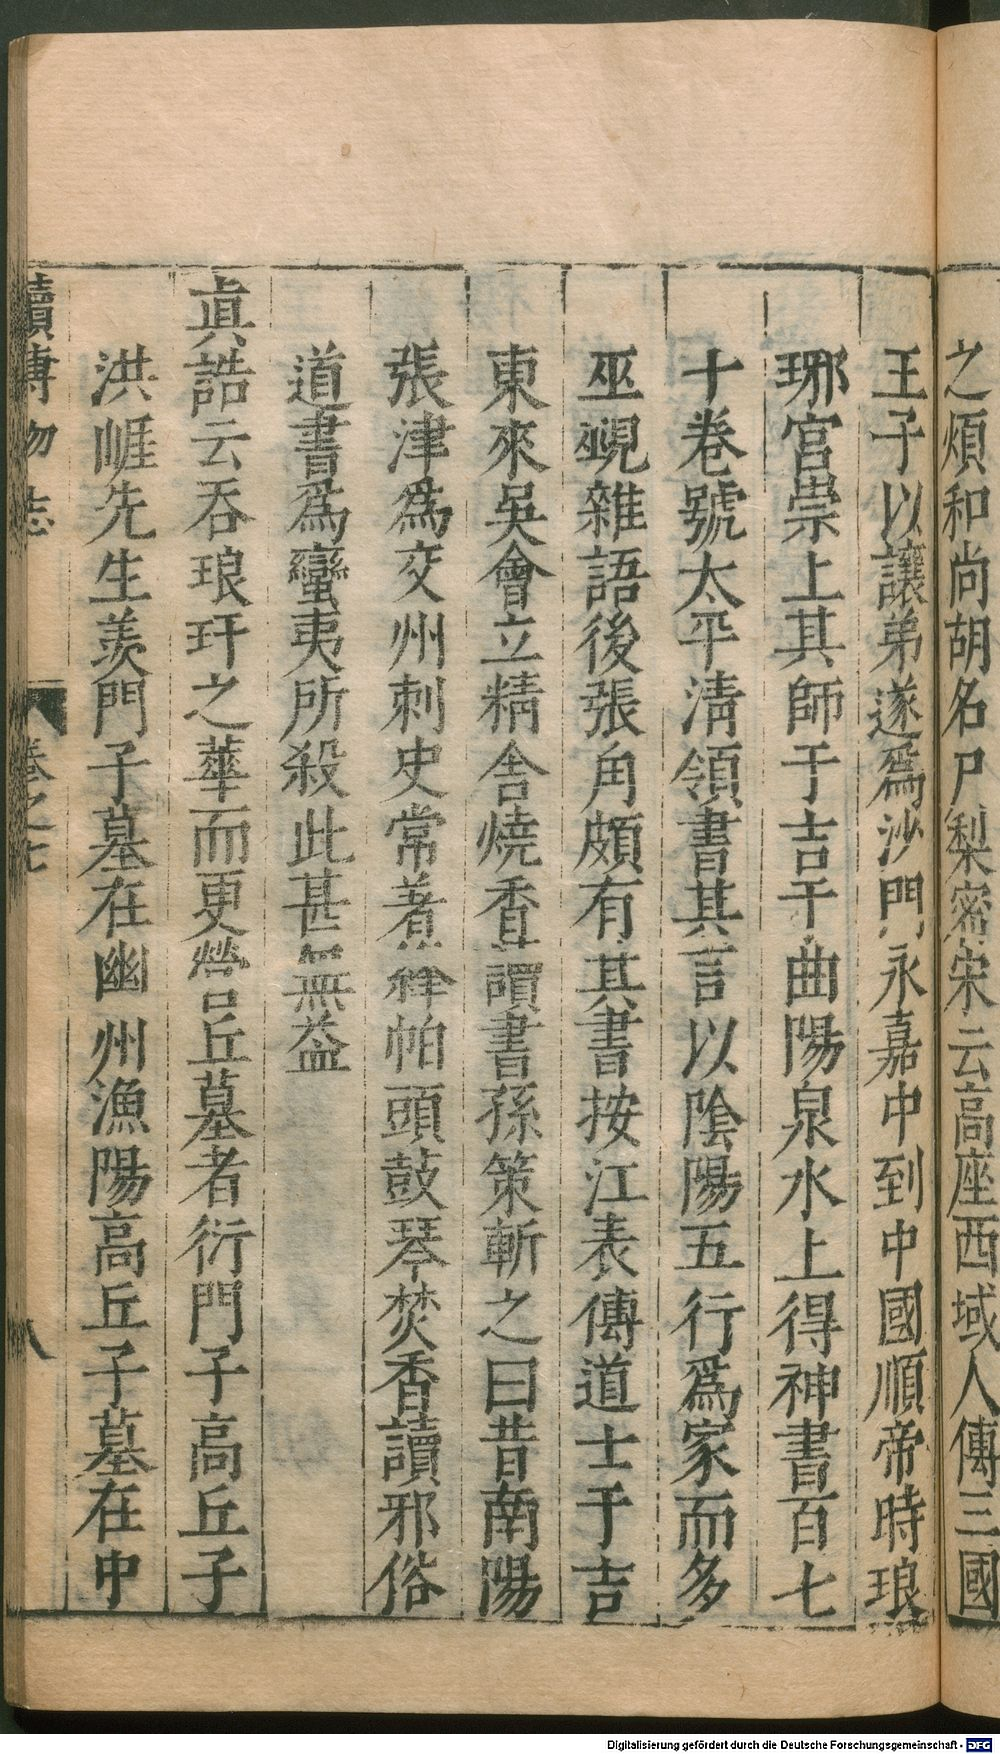 之煩和尚胡名尸梨密宋云高座西域人傳三國
王子以讓弟遂爲沙門永嘉中到中國順帝時琅
琊宮崇上其師于吉于曲陽泉水上得神書百七
十卷號太平清領書其言以陰陽五行爲家而多
巫覡雜語後張角頗有其書按江表傳道士于吉
東來吳會立精舍燒香讀書孫策斬之曰昔南陽
張津爲交州刺史常着絳帕頭鼓琴焚香讀邪俗
道書爲蠻夷所殺此甚無益
眞誥云吞琅玕之華而更營丘墓者衍門子高丘子
洪崕先生羨門子墓在幽州漁陽高丘子墓在中
續博物志 卷之七 八
Digitalisierung gefördert durch die Deutsche Forschungsgemeinschaft - DFG